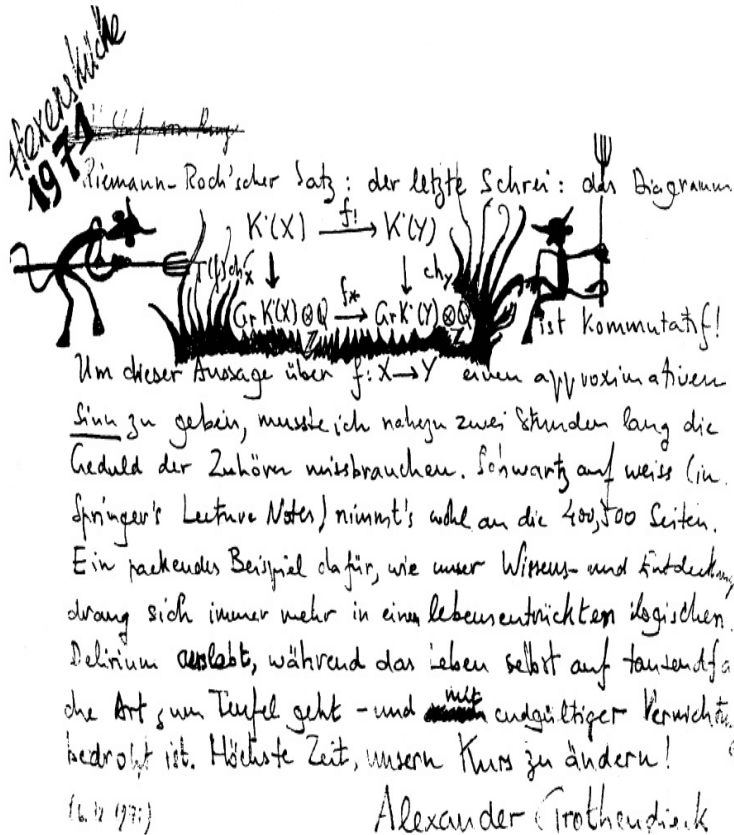 Hexenküche
1971
Riemann-Roch'scher Satz: der letzte Schrei: das Diagramm
K˙(X) f! → K˙(Y)
↓ ↓ chY
Gr K˙(X)⊗Q f* → Gr K˙(Y)⊗Q
Z Z
ist kommutatif!
Um dieser Aussage über f: X→Y einen approximativen
Sinn zu geben, musste ich nahezu zwei Stunden lang die
Geduld der Zuhörer missbrauchen. Schwartz auf weiss (in
Springer's Lecture Notes) nimmt's wohl an die 400, 500 Seiten.
Ein packendes Beispiel dafür, wie unser Wissens- und Entdeckungs
drang sich immer mehr in einem lebensentrückten logischen
Delirium auslebt, während das Leben selbst auf tausendfa
che Art zum Teufel geht - und mit endgültiger Vernichtung
bedroht ist. Höchste Zeit, unsern Kurs zu ändern!
Alexander Grothendieck